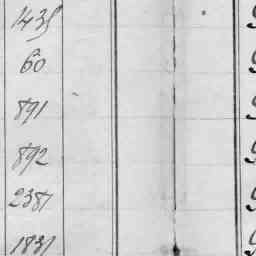 1435
60
891
892
2381
1831